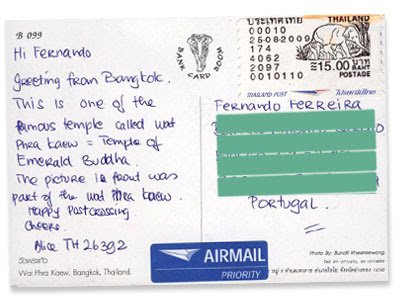 B 099
Hi Fernando
Greeting from Bangkok.
This is one of the
famous temple called wat
Phra Kaew = Temple of
Emerald Buddha.
The picture in front was
part of the wat Phra Kaew.
Happy Postcrossing
Cheers.
Alice TH 26392
วัดพระแก้ว
Wat Phra Kaew, Bangkok, Thailand.
BANK CARD BOOM
ประเทศไทย
00010
25-08-2009
174
4062
2097
0010110
THAILAND
15.00 บาท
BAHT
POSTAGE
THAILAND POST
ไปรษณีย์ไทย
Fernando Ferreira
Portugal.
AIRMAIL
PRIORITY
Photo By: